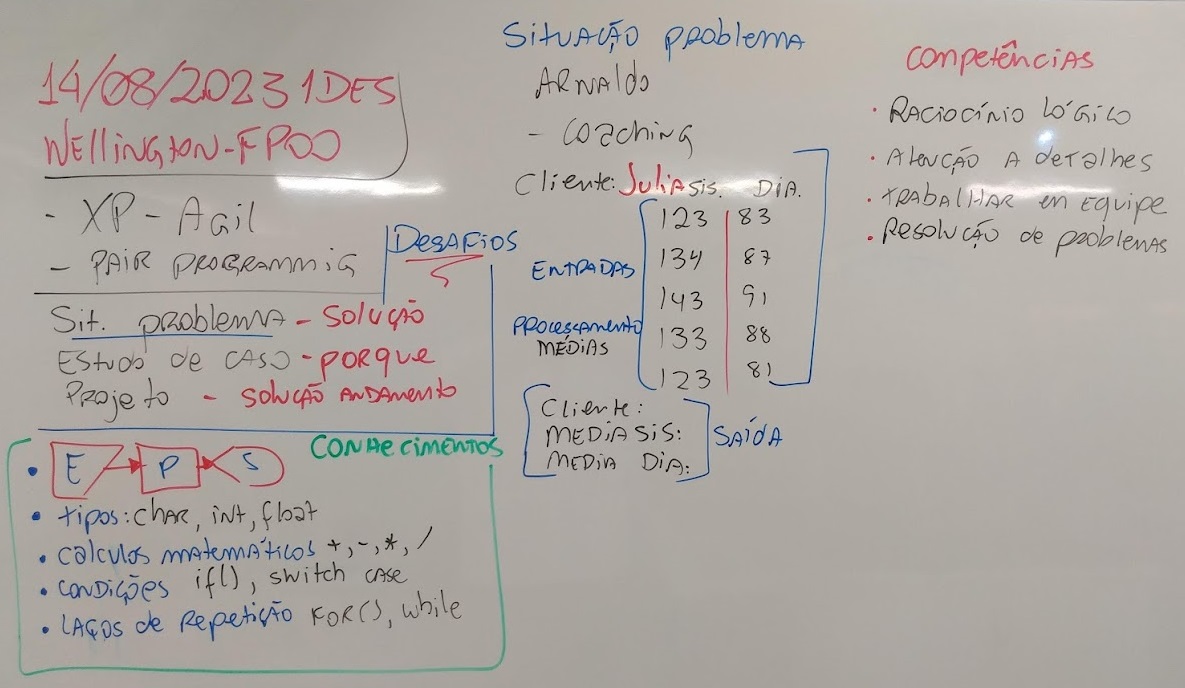 14/08/2023 1DES
WELLINGTON-FPOO
- XP - Agil
- PAIR PROGRAMMIG
DESAFIOS
Sit. problema - SOLUÇÃO
ESTUDO de CASO - PORQUE
PROJETO - SOLUÇÃO ANDAMENTO
CONHECIMENTOS
• E P S
• tipos: CHAR, int, float
• CALCULOS MATEMÁTICOS +, -, *, /
• CONDIÇÕES if(), switch CASE
• LAÇOS de Repetição FOR(), while
Situação problema
ARNALDO
- COACHING
Cliente: JULIA SIS. DIA.
123 83
134 87
143 91
133 88
123 81
ENTRADAS
PROCESSAMENTO
MÉDIAS
Cliente:
MEDIA SIS:
MEDIA DIA:
SAÍDA
Competências
• RACIOCÍNIO LÓGICO
• ATENÇÃO A detalhes
• TRABALHAR em EQUIPE
• RESOLUÇÃO de PROBLEMAS